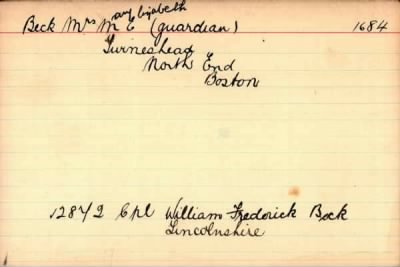 ary Elizabeth
Beck Mrs M E (guardian) 1684
Turneshead
North End
Boston
12872 Cpl William Frederick Beck
Lincolnshire